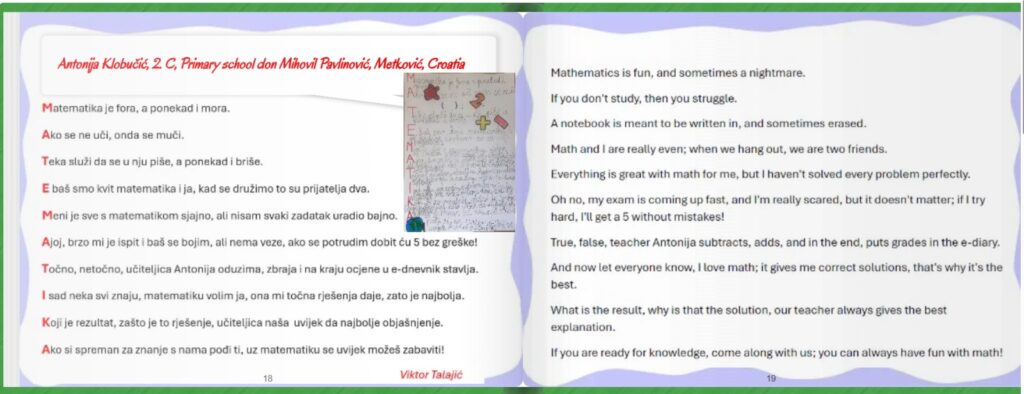 Antonija Klobučić, 2. C, Primary school don Mihovil Pavlinović, Metković, Croatia
Matematika je fora, a ponekad i mora.
Ako se ne uči, onda se muči.
Teka služi da se u nju piše, a ponekad i briše.
E baš smo kvit matematika i ja, kad se družimo to su prijatelja dva.
Meni je sve s matematikom sjajno, ali nisam svaki zadatak uradio bajno.
Ajoj, brzo mi je ispit i baš se bojim, ali nema veze, ako se potrudim dobit ću 5 bez greške!
Točno, netočno, učiteljica Antonija oduzima, zbraja i na kraju ocjene u e-dnevnik stavlja.
I sad neka svi znaju, matematiku volim ja, ona mi točna rješenja daje, zato je najbolja.
Koji je rezultat, zašto je to rješenje, učiteljica naša uvijek da najbolje objašnjenje.
Ako si spreman za znanje s nama pođi ti, uz matematiku se uvijek možeš zabaviti!
Viktor Talajić
18
MATEMATIKA
Mathematics is fun, and sometimes a nightmare.
If you don't study, then you struggle.
A notebook is meant to be written in, and sometimes erased.
Math and I are really even; when we hang out, we are two friends.
Everything is great with math for me, but I haven't solved every problem perfectly.
Oh no, my exam is coming up fast, and I'm really scared, but it doesn't matter; if I try
hard, I'll get a 5 without mistakes!
True, false, teacher Antonija subtracts, adds, and in the end, puts grades in the e-diary.
And now let everyone know, I love math; it gives me correct solutions, that's why it's the
best.
What is the result, why is that the solution, our teacher always gives the best
explanation.
If you are ready for knowledge, come along with us; you can always have fun with math!
19